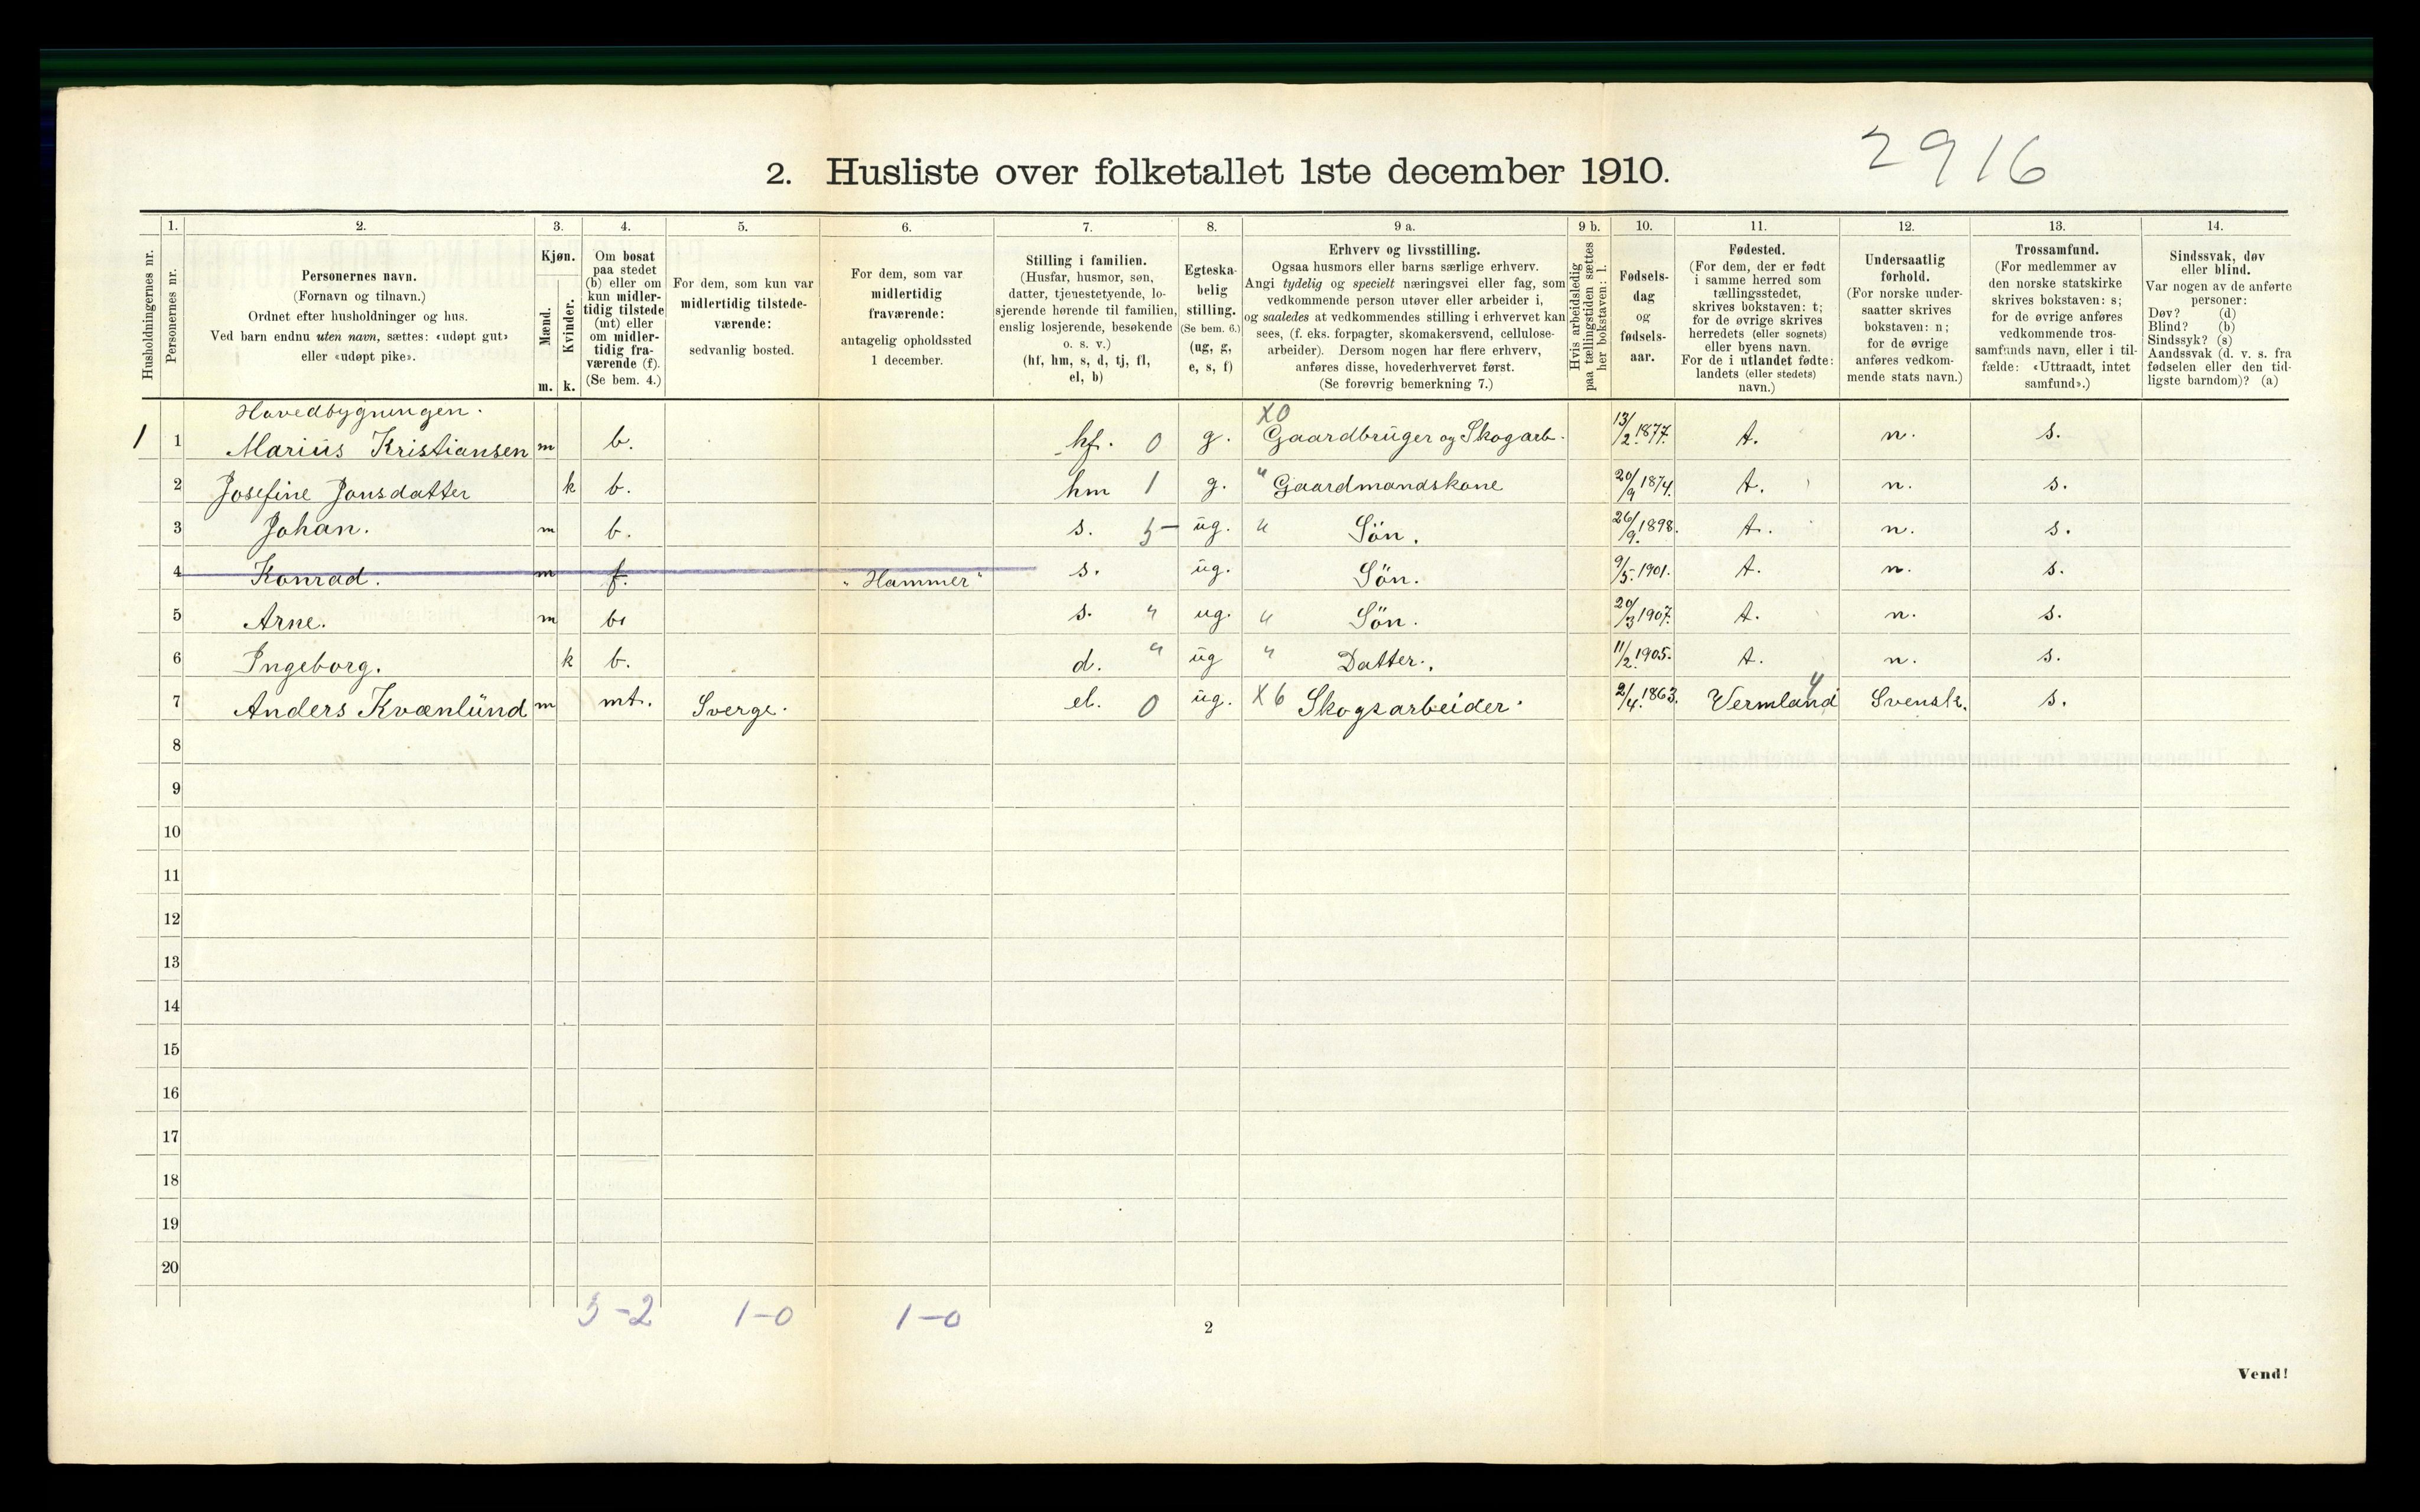 2916
2. Husliste over folketallet 1ste december 1910.
Husholdningernes nr.
1. Personernes nr.
2. Personernes navn.
(Fornavn og tilnavn.)
Ordnet efter husholdninger og hus.
Ved barn endnu uten navn, sættes: «udøpt gut»
eller «udøpt pike».
3. Kjøn.
Mænd. m.
Kvinder. k.
4. Om bosat
paa stedet
(b) eller om
kun midler-
tidig tilstede
(mt) eller
om midler-
tidig fra-
værende (f).
(Se bem. 4.)
5. For dem, som kun var
midlertidig tilstede-
værende:
sedvanlig bosted.
6. For dem, som var
midlertidig
fraværende:
antagelig opholdssted
1 december.
7. Stilling i familien.
(Husfar, husmor, søn,
datter, tjenestetyende, lo-
sjerende hørende til familien,
enslig losjerende, besøkende
o. s. v.)
(hf, hm, s, d, tj, fl,
el, b)
8. Egteska-
belig
stilling.
(Se bem. 6.)
(ug, g,
e, s, f)
9 a. Erhverv og livsstilling.
Ogsaa husmors eller barns særlige erhverv.
Angi tydelig og specielt næringsvei eller fag, som
vedkommende person utøver eller arbeider i,
og saaledes at vedkommendes stilling i erhvervet kan
sees, (f. eks. forpagter, skomakersvend, cellulose-
arbeider). Dersom nogen har flere erhverv,
anføres disse, hovederhvervet først.
(Se forøvrig bemerkning 7.)
9 b. Hvis arbeidsledig
paa tællingstiden sættes
her bokstaven: l.
10. Fødsels-
dag
og
fødsels-
aar.
11. Fødested.
(For dem, der er født
i samme herred som
tællingsstedet,
skrives bokstaven: t;
for de øvrige skrives
herredets (eller sognets)
eller byens navn.
For de i utlandet fødte:
landets (eller stedets)
navn.)
12. Undersaatlig
forhold.
(For norske under-
saatter skrives
bokstaven: n;
for de øvrige
anføres vedkom-
mende stats navn.)
13. Trossamfund.
(For medlemmer av
den norske statskirke
skrives bokstaven: s;
for de øvrige anføres
vedkommende tros-
samfunds navn, eller i til-
fælde: «Uttraadt, intet
samfund».)
14. Sindssvak, døv
eller blind.
Var nogen av de anførte
personer:
Døv? (d)
Blind? (b)
Sindssyk? (s)
Aandssvak (d. v. s. fra
fødselen eller den tid-
ligste barndom)? (a)
Hovedbygningen. X0
1 1 Marius Kristiansen m b. hf. 0 g. Gaardbruger og Skogarb. 13/2 1877. t. n. s.
2 Josefine Jonsdatter k b. hm 1 g. " Gaardmandskone 20/9 1874. t. n. s.
3 Johan. m b. s. 5 ug. " Søn. 26/9. 1898. t. n. s.
4 Konrad. m f. "Hammer" s. ug. Søn. 9/5. 1901. t. n. s.
5 Arne. m b. s. " ug. " Søn. 20/3 1907. t. n. s.
6 Ingeborg. k b. d. " ug " Datter. 11/2. 1905. t. n. s.
7 Anders Kvænlund m mt. Sverge. el. 0 ug. X6 Skogsarbeider. 2/4. 1863. Vermland Svensk. s.
8
9
10
11
12
13
14
15
16
17
18
19
20
5-2 1-0 1-0
2
Vend!